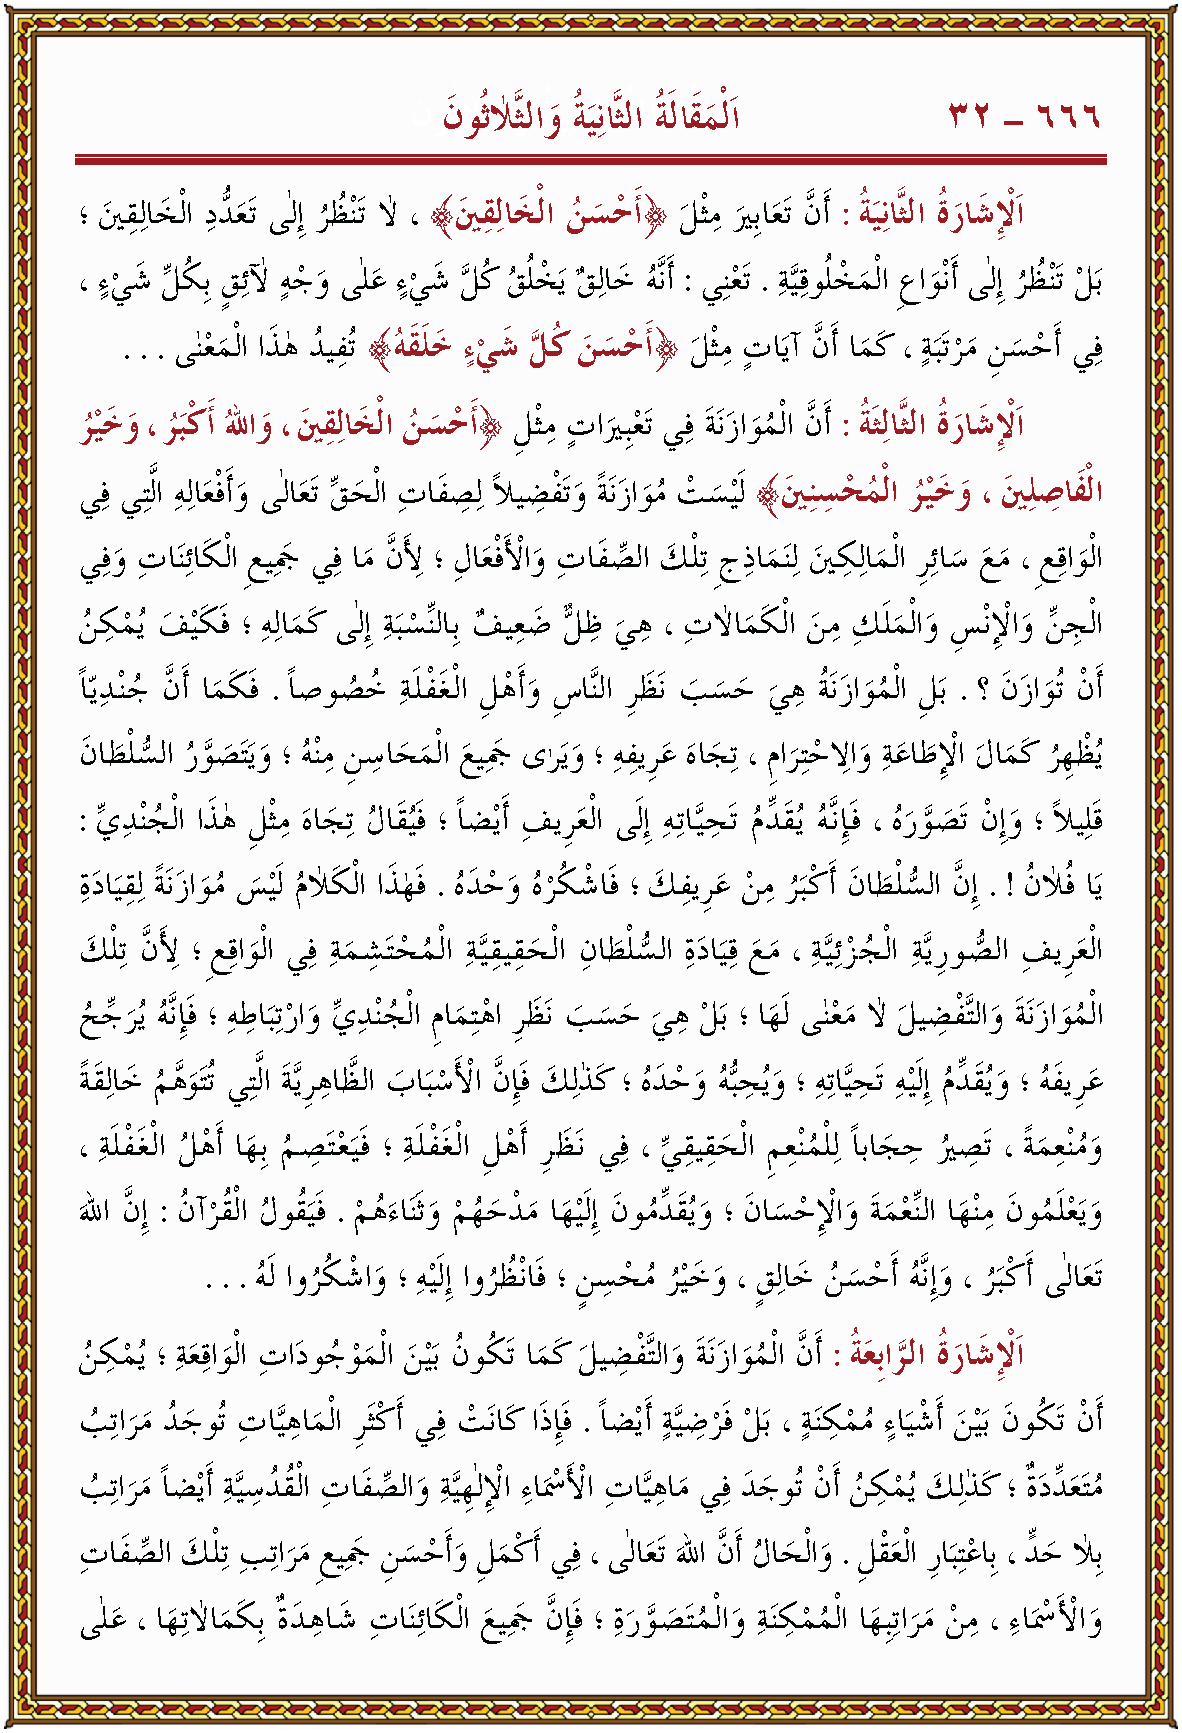 ٦٦٦ – ٣٢ اَلْمَقَالَةُ الثَّانِيَةُ وَالثَّلَاثُونَ
اَلْإِشَارَةُ الثَّانِيَةُ : أَنَّ تَعَابِيرَ مِثْلَ ﴿أَحْسَنُ الْخَالِقِينَ﴾ ، لَا تَنْظُرُ إِلَى تَعَدُّدِ الْخَالِقِينَ ؛
بَلْ تَنْظُرُ إِلَى أَنْوَاعِ الْمَخْلُوقِيَّةِ . تَعْنِي : أَنَّهُ خَالِقٌ يَخْلُقُ كُلَّ شَيْءٍ عَلَى وَجْهٍ لَآئِقٍ بِكُلِّ شَيْءٍ ،
فِي أَحْسَنِ مَرْتَبَةٍ ، كَمَا أَنَّ آيَاتٍ مِثْلَ ﴿أَحْسَنَ كُلَّ شَيْءٍ خَلَقَهُ﴾ تُفِيدُ هٰذَا الْمَعْنٰى . . .
اَلْإِشَارَةُ الثَّالِثَةُ : أَنَّ الْمُوَازَنَةَ فِي تَعْبِيرَاتٍ مِثْلِ ﴿أَحْسَنُ الْخَالِقِينَ ، وَاللهُ أَكْبَرُ ، وَخَيْرُ
الْفَاصِلِينَ ، وَخَيْرُ الْمُحْسِنِينَ﴾ لَيْسَتْ مُوَازَنَةً وَتَفْضِيلًا لِصِفَاتِ الْحَقِّ تَعَالَى وَأَفْعَالِهِ الَّتِي فِي
الْوَاقِعِ ، مَعَ سَائِرِ الْمَالِكِينَ لِنَمَاذِجِ تِلْكَ الصِّفَاتِ وَالْأَفْعَالِ ؛ لِأَنَّ مَا فِي جَمِيعِ الْكَائِنَاتِ وَفِي
الْجِنِّ وَالْإِنْسِ وَالْمَلَكِ مِنَ الْكَمَالَاتِ ، هِيَ ظِلٌّ ضَعِيفٌ بِالنِّسْبَةِ إِلَى كَمَالِهِ ؛ فَكَيْفَ يُمْكِنُ
أَنْ تُوَازَنَ ؟ . بَلِ الْمُوَازَنَةُ هِيَ حَسَبَ نَظَرِ النَّاسِ وَأَهْلِ الْغَفْلَةِ خُصُوصًا . فَكَمَا أَنَّ جُنْدِيًّا
يُظْهِرُ كَمَالَ الْإِطَاعَةِ وَالِاحْتِرَامِ ، تِجَاهَ عَرِيفِهِ ؛ وَيَرَى جَمِيعَ الْمَحَاسِنِ مِنْهُ ؛ وَيَتَصَوَّرُ السُّلْطَانَ
قَلِيلًا ؛ وَإِنْ تَصَوَّرَهُ ، فَإِنَّهُ يُقَدِّمُ تَحِيَّاتِهِ إِلَى الْعَرِيفِ أَيْضًا ؛ فَيُقَالُ تِجَاهَ مِثْلِ هٰذَا الْجُنْدِيِّ :
يَا فُلَانُ ! . إِنَّ السُّلْطَانَ أَكْبَرُ مِنْ عَرِيفِكَ ؛ فَاشْكُرْهُ وَحْدَهُ . فَهٰذَا الْكَلَامُ لَيْسَ مُوَازَنَةً لِقِيَادَةِ
الْعَرِيفِ الصُّورِيَّةِ الْجُزْئِيَّةِ ، مَعَ قِيَادَةِ السُّلْطَانِ الْحَقِيقِيَّةِ الْمُحْتَشِمَةِ فِي الْوَاقِعِ ؛ لِأَنَّ تِلْكَ
الْمُوَازَنَةَ وَالتَّفْضِيلَ لَا مَعْنٰى لَهَا ؛ بَلْ هِيَ حَسَبَ نَظَرِ اهْتِمَامِ الْجُنْدِيِّ وَارْتِبَاطِهِ ؛ فَإِنَّهُ يُرَجِّحُ
عَرِيفَهُ ؛ وَيُقَدِّمُ إِلَيْهِ تَحِيَّاتِهِ ؛ وَيُحِبُّهُ وَحْدَهُ ؛ كَذٰلِكَ فَإِنَّ الْأَسْبَابَ الظَّاهِرِيَّةَ الَّتِي تُتَوَهَّمُ خَالِقَةً
وَمُنْعِمَةً ، تَصِيرُ حِجَابًا لِلْمُنْعِمِ الْحَقِيقِيِّ ، فِي نَظَرِ أَهْلِ الْغَفْلَةِ ؛ فَيَعْتَصِمُ بِهَا أَهْلُ الْغَفْلَةِ ،
وَيَعْلَمُونَ مِنْهَا النِّعْمَةَ وَالْإِحْسَانَ ؛ وَيُقَدِّمُونَ إِلَيْهَا مَدْحَهُمْ وَثَنَاءَهُمْ . فَيَقُولُ الْقُرْآنُ : إِنَّ اللهَ
تَعَالَى أَكْبَرُ ، وَإِنَّهُ أَحْسَنُ خَالِقٍ ، وَخَيْرُ مُحْسِنٍ ؛ فَانْظُرُوا إِلَيْهِ ؛ وَاشْكُرُوا لَهُ . . .
اَلْإِشَارَةُ الرَّابِعَةُ : أَنَّ الْمُوَازَنَةَ وَالتَّفْضِيلَ كَمَا تَكُونُ بَيْنَ الْمَوْجُودَاتِ الْوَاقِعَةِ ؛ يُمْكِنُ
أَنْ تَكُونَ بَيْنَ أَشْيَاءٍ مُمْكِنَةٍ ، بَلْ فَرْضِيَّةٍ أَيْضًا . فَإِذَا كَانَتْ فِي أَكْثَرِ الْمَاهِيَّاتِ تُوجَدُ مَرَاتِبُ
مُتَعَدِّدَةٌ ؛ كَذٰلِكَ يُمْكِنُ أَنْ تُوجَدَ فِي مَاهِيَّاتِ الْأَسْمَاءِ الْإِلٰهِيَّةِ وَالصِّفَاتِ الْقُدْسِيَّةِ أَيْضًا مَرَاتِبُ
بِلَا حَدٍّ ، بِاعْتِبَارِ الْعَقْلِ . وَالْحَالُ أَنَّ اللهَ تَعَالَى ، فِي أَكْمَلِ وَأَحْسَنِ جَمِيعِ مَرَاتِبِ تِلْكَ الصِّفَاتِ
وَالْأَسْمَاءِ ، مِنْ مَرَاتِبِهَا الْمُمْكِنَةِ وَالْمُتَصَوَّرَةِ ؛ فَإِنَّ جَمِيعَ الْكَائِنَاتِ شَاهِدَةٌ بِكَمَالَاتِهَا ، عَلَى